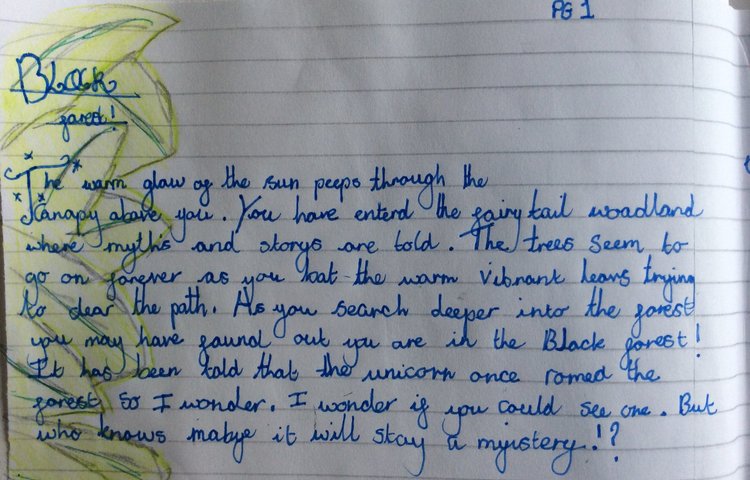 PG 1
Black
forest!
The warm glow of the sun peeps through the
Kanapy above you. You have enterd the fairy tail woodland
where myths and storys are told. The trees seem to
go on forever as you bat the warm vibrant leavs trying
to clear the path. As you search deeper into the forest
you may have found out you are in the Black forest!
It has been told that the unicorn once romed the
forest so I wonder. I wonder if you could see one. But
who knows mabye it will stay a myistery!?